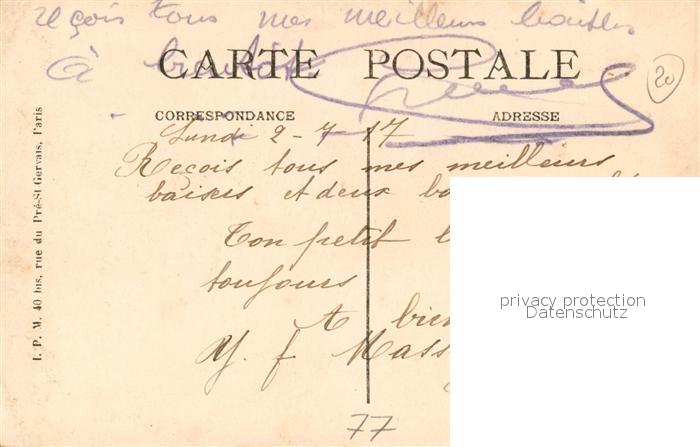 reçois tous mes meilleurs baisers
à bientôt
CARTE POSTALE
20
CORRESPONDANCE
ADRESSE
Lundi 2-7-17
Reçois tous mes meilleurs
baisers et deux
Ton petit
toujours
A bien
Y. f Mass
77
I. P. M. 40 bis, rue du Pré-St-Gervais, Paris
privacy protection
Datenschutz